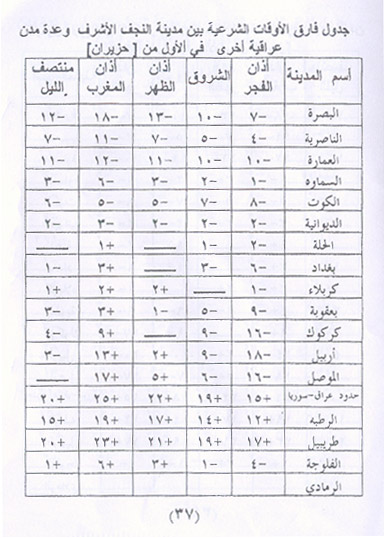 جدول فارق الأوقات الشرعية بين مدينة النجف الأشرف وعدة مدن
عراقية أخرى في ألأول من [حزيران]
أسم المدينة أذان الفجر الشروق أذان الظهر أذان المغرب منتصف الليل
البصرة -٧ -١٠ -١٣ -١٨ -١٢
الناصرية -٤ -٥ -٧ -١١ -٧
العمارة -١٠ -١٠ -١١ -١٢ -١١
السماوه -١ -٢ -٣ -٦ -٣
الكوت -٨ -٧ -٥ -٥ -٦
الديوانية -٢ -٢ -٢ -٣ -٢
الحلة -٢ -١ — +١ —
بغداد -٦ -٣ — +٣ -١
كربلاء -١ — +٢ +٢ +١
بعقوبة -٩ -٥ -١ +٣ -٣
كركوك -١٦ -٩ — +٩ -٤
أربيل -١٨ -٩ +٢ +١٣ -٣
الموصل -١٦ -٦ +٥ +١٧ —
حدود عراق-سوريا +١٥ +١٩ +٢٢ +٢٥ +٢٠
الرطبه +١٢ +١٤ +١٧ +١٩ +١٥
طريبيل +١٧ +١٩ +٢١ +٢٣ +٢٠
الفلوجة -٤ -١ +٣ +٦ +١
الرمادي
(٣٧)